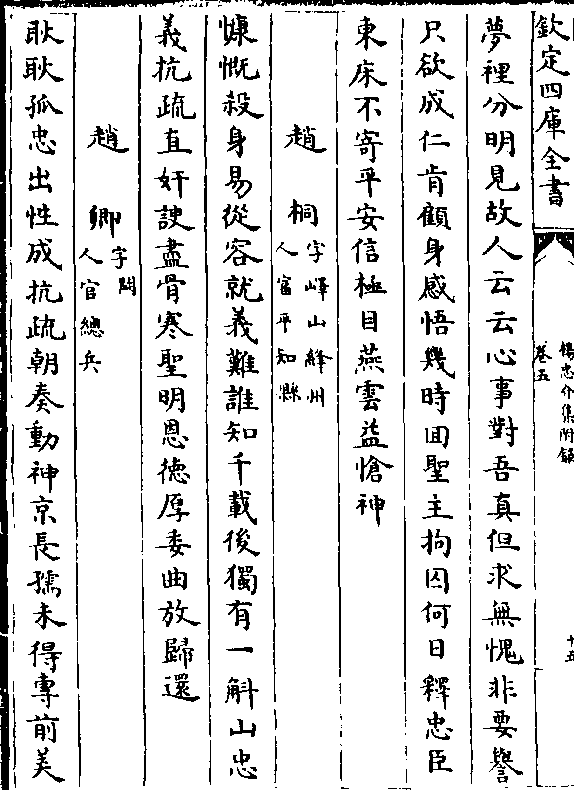 欽定四庫全書
楊忠介集附録
卷五
十五
夢裡分明見故人云云心事對吾真但求無愧非要譽
只欲成仁肯顧身感悟幾時回聖主拘囚何日釋忠臣
東床不寄平安信極目燕雲益愴神
趙桐字嶧山絳州
人富平知縣
慷慨殺身易從容就義難誰知千載後獨有一斛山忠
義抗疏直奸諛盡骨寒聖明恩德厚委曲放歸還
趙卿字
人官總兵
耿耿孤忠出性成抗疏朝奏動神京長孺未得專前美